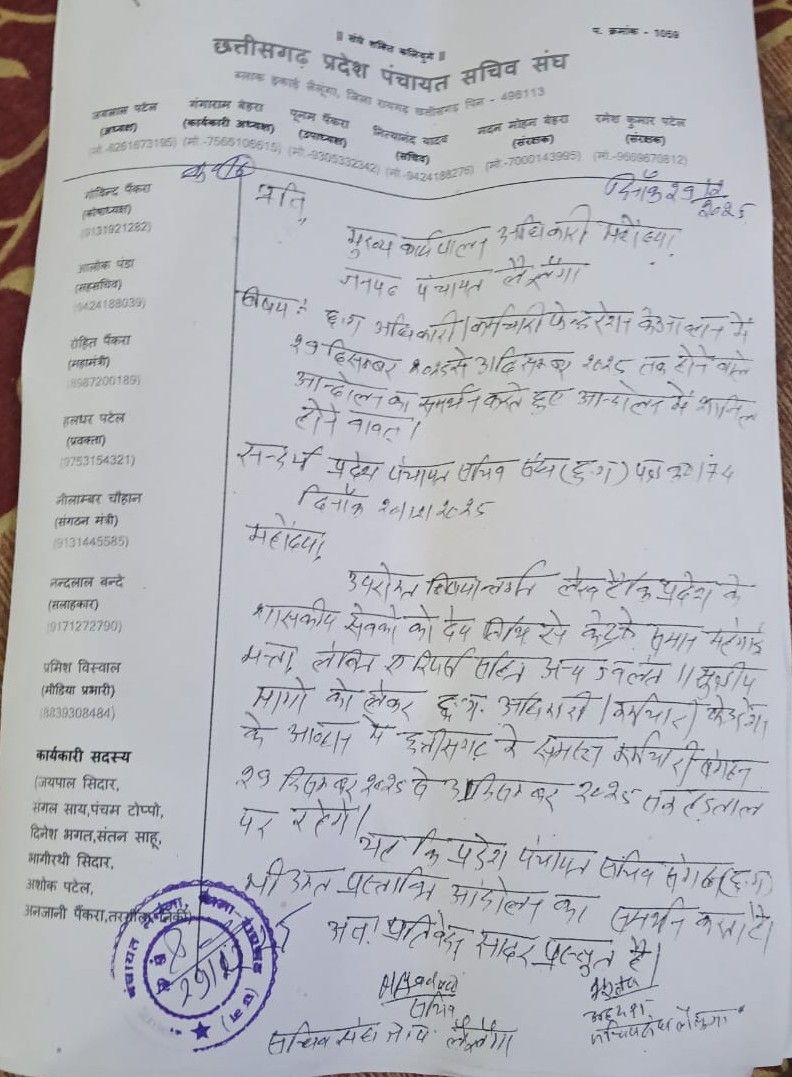 || संघे शक्ति कलियुगे ||
प. क्रमांक - 1059
छत्तीसगढ़ प्रदेश पंचायत सचिव संघ
ब्लाक इकाई लैलूंगा, जिला रायगढ़ छत्तीसगढ़ पिन - 496113
जयलाल पटेल गंगाराम बेहरा पूनम पैंकरा नित्यानंद यादव मदन मोहन बेहरा रमेश कुमार पटेल
(अध्यक्ष) (कार्यकारी अध्यक्ष) (उपाध्यक्ष) (सचिव) (संरक्षक) (संरक्षक)
(मो.-8261873195) (मो.-7566108615) (मो.-9305332342) (मो.-9424188276) (मो.-7000143995) (मो.-9669670812)
दिनाँक 29/12/2025
गोविन्द पैंकरा
(कोषाध्यक्ष)
(9131921282)
आलोक पंडा
(सहसचिव)
(9424188039)
रोहित पैंकरा
(महामंत्री)
(8987200189)
हलधर पटेल
(प्रवक्ता)
(9753154321)
नीलाम्बर चौहान
(संगठन मंत्री)
(9131445585)
नन्दलाल बन्दे
(सलाहकार)
(9171272790)
प्रमिश विस्वाल
(मीडिया प्रभारी)
(8839308484)
कार्यकारी सदस्य
(जयपाल सिदार,
मंगल साय, पंचम टोप्पो,
दिनेश भगत, संतन साहू,
भागीरथी सिदार,
अशोक पटेल,
अनजानी पैंकरा,
प्रति,
मुख्य कार्यपालन अधिकारी महोदया
जनपद पंचायत लैलूँगा
विषय :- छ.ग अधिकारी/कर्मचारी फेडरेशन के आव्हान में
29 दिसम्बर 2025 से 31 दिसम्बर 2025 तक होने वाले
आन्दोलन का समर्थन करते हुए आन्दोलन में शामिल
होने बाबत।
सन्दर्भ प्रदेश पंचायत सचिव संघ (छ.ग) पत्र क्र 174
दिनाँक
महोदया,
उपरोक्त विषयान्तर्गत लेख है कि प्रदेश के
शासकीय सेवकों को देय तिथि से केन्द्र के समान महंगाई
भत्ता, लंबित एरियर्स सहित अन्य ज्वलंत 11 सूत्रीय
मांगो को लेकर छ.ग. अधिकारी/कर्मचारी फेडरेशन
के आव्हान में छत्तीसगढ़ के समस्त कर्मचारी संगठन
29 दिसम्बर 2025 से 31 दिसम्बर 2025 तक हड़ताल
पर रहेंगे।
यह कि प्रदेश पंचायत सचिव संगठन (छ.ग)
भी उक्त प्रस्तावित आंदोलन का समर्थन करता है।
अतः प्रतिवेदन सादर प्रस्तुत है।
सचिव
सचिव संघ ज.प. लैलूँगा
अध्यक्ष
सचिव संघ लैलूंगा